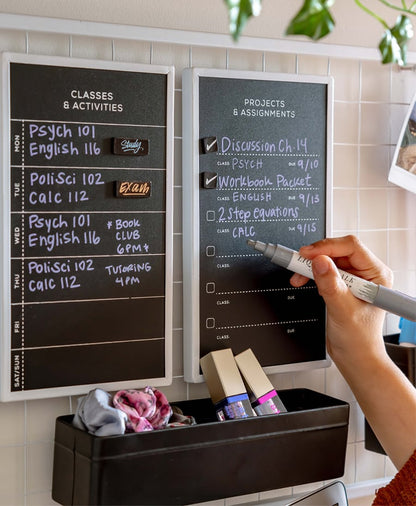 CLASSES
& ACTIVITIES
MON
Psych 101
English 116
Study
TUE
PoliSci 102
Calc 112
EXAM
WED
Psych 101
English 116
* BOOK
CLUB
6PM *
THU
PoliSci 102
Calc 112
TUTORING
4 PM
FRI
SAT/SUN
PROJECTS
& ASSIGNMENTS
Discussion Ch. 14
CLASS: PSYCH DUE: 9/10
Workbook Packet
CLASS: ENGLISH DUE: 9/15
2 Step equations
CLASS: CALC DUE: 9/15
CLASS: DUE:
CLASS: DUE:
CLASS: DUE: